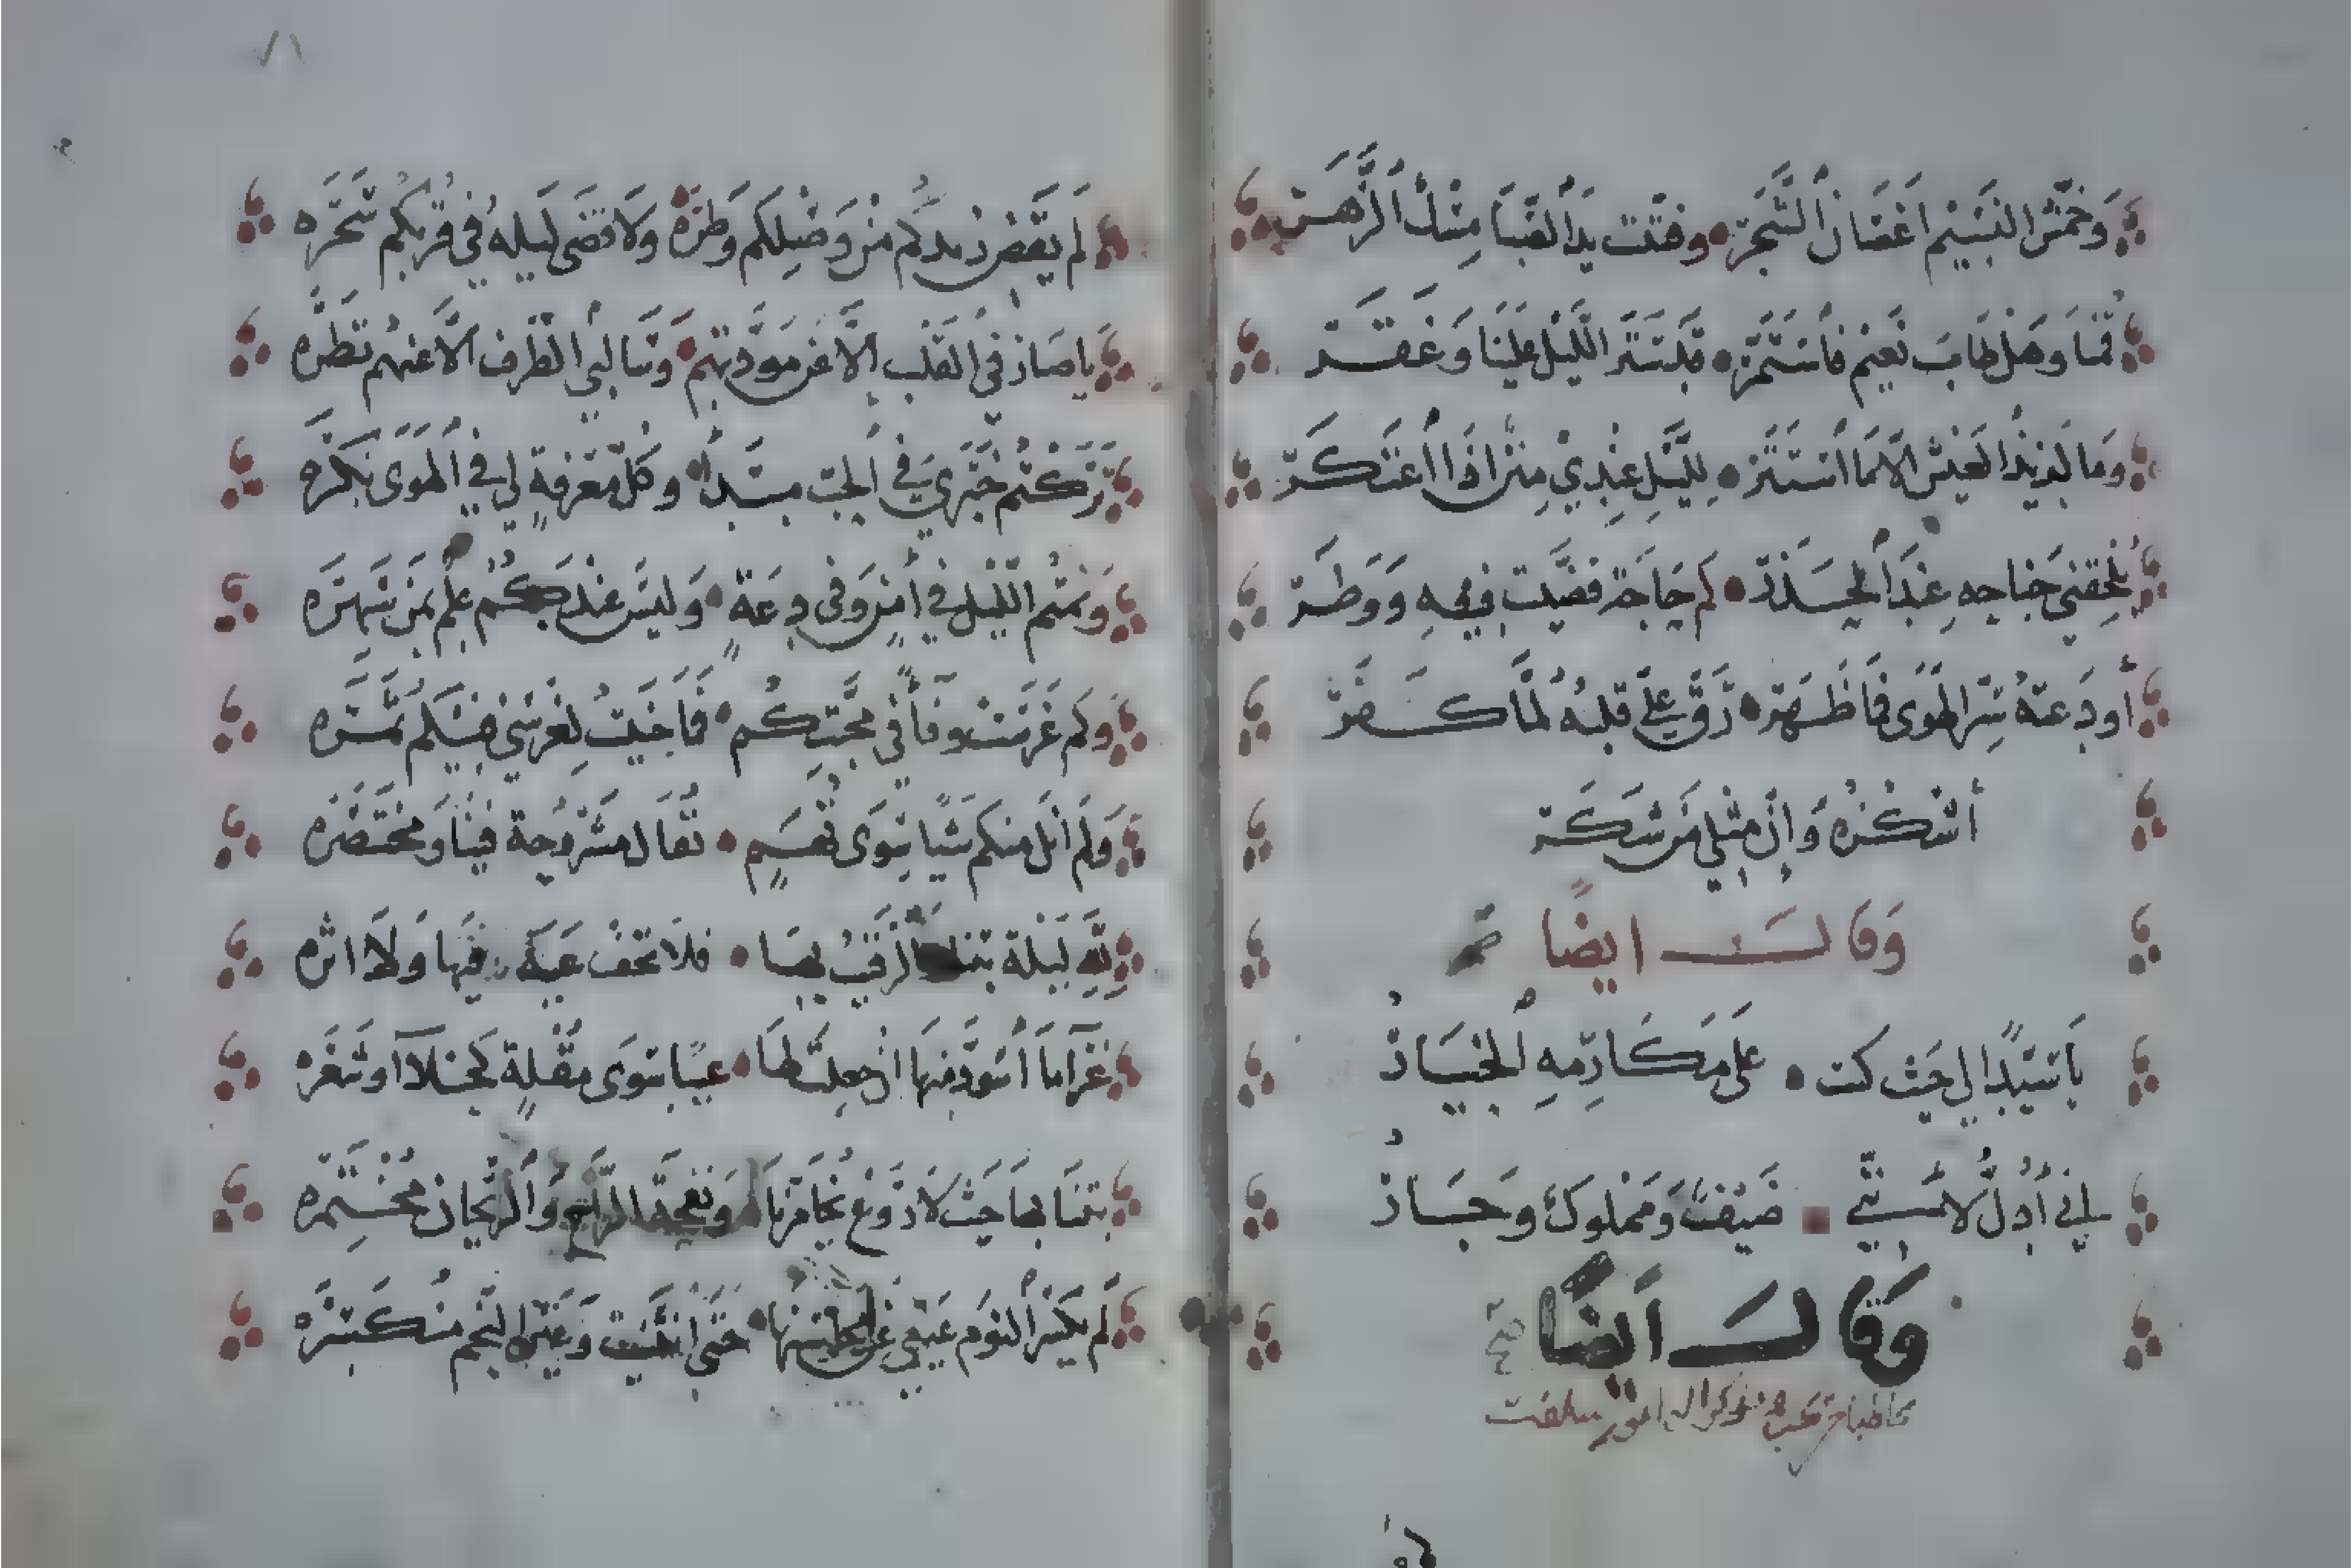 وَخَمَّشَ النَّسِيْمُ أَغْصَانَ الشَّجَرْ • وفتّت يدُ الصَّبَا مِسْكَ الزَّهَرْ
قُمْنَا وَهَلْ طَابَ نَعِيْم فاسْتَمَرّ • قد سَتَر اللَّيْل علَيْنَا وَغَفَر
وَمَا لَذِيذُ العَيْش إلّا مَا اسْتَتَر • لِلَّيْلِ عِنْدِيْ مِنَن إذَا اعْتَكَرْ
يُلْحِقني جَناحِهِ عِنْدَ الحَذَرْ • كم حَاجَة قضّيت فِيهِ وَوَطَرْ
أودَعتهُ سِرّ الهَوى فما ظَهَرْ • رَقَّ عَلَى قلبهُ لمَّا كفَر
أشْكُرُه وَإنّ مِثْلي مَن شَكَرْ
وَقَالَ ايضًا
يَا سَيِّدًا لي حَيْث كنت • عَلَى مَكَارِمِهِ الخِيَارْ
بِي أُدِلُّ لأنَّنِي • ضَيْفٌ وَمَمْلوكٌ وَجَارْ
وَقَالَ أيضًا
٧١
لَم يَقْضِ زيدكُم مِنْ وَصْلِكم وَطَرَهْ • وَلا قضَى لَيلهُ في قُربِكُم سَحَرَه
يا صَارِفي القَلْب إلّا عن مَوَدَّتِهم • وَسَالبي الطَّرْف إلّا عنهُم نَظَرَه
تَرَكْتُم خَبَري في الحُبّ مبتدأ • وكُلّ مَعْرفةٍ لي في الهَوَى نَكِرَه
وَنمتُم اللَّيْل في أمْنٍ وَفي دِعَةٍ • وَليسَ عنْدكُمُ عِلْم بمَن سَهِرَه
وكَم غَرَسْتُ وفاً في مَحَبّتِكُم • فمَا جَنَيتُ لِغَرْسي فيكم ثَمَرَه
وَلَم انَل منكم شَيْئًا سِوَى تُهَمٍ • تُقَال مَشْرُوحَة فينَا وَمختَصَرَه
لِلّهِ لَيْلة بتنا وَالرّقيبُ بها • فلَا تخفْ عَيْنَهُ فيها وَلا اثرَه
غَرّاءَ مَا اسْوَدَّ مِنهَا إنْ جعلتَ لهَا • عيْبًا سوَى مُقْلَةٍ كَحْلاءَ أو شَعَرَه
بتْنَا بهَا حَيْث لا رَوْع يُخَامِرُنَا • وَنفحة الرّاح وَالرّيحان مُخْتَمِرَه
لَم يَكسِرِ النَّوم عَيْني عن مَحَاسِنهَا • حَتّى انثَنَيْت وَعَيْنُ النَّجْم مُنكَسِرَه